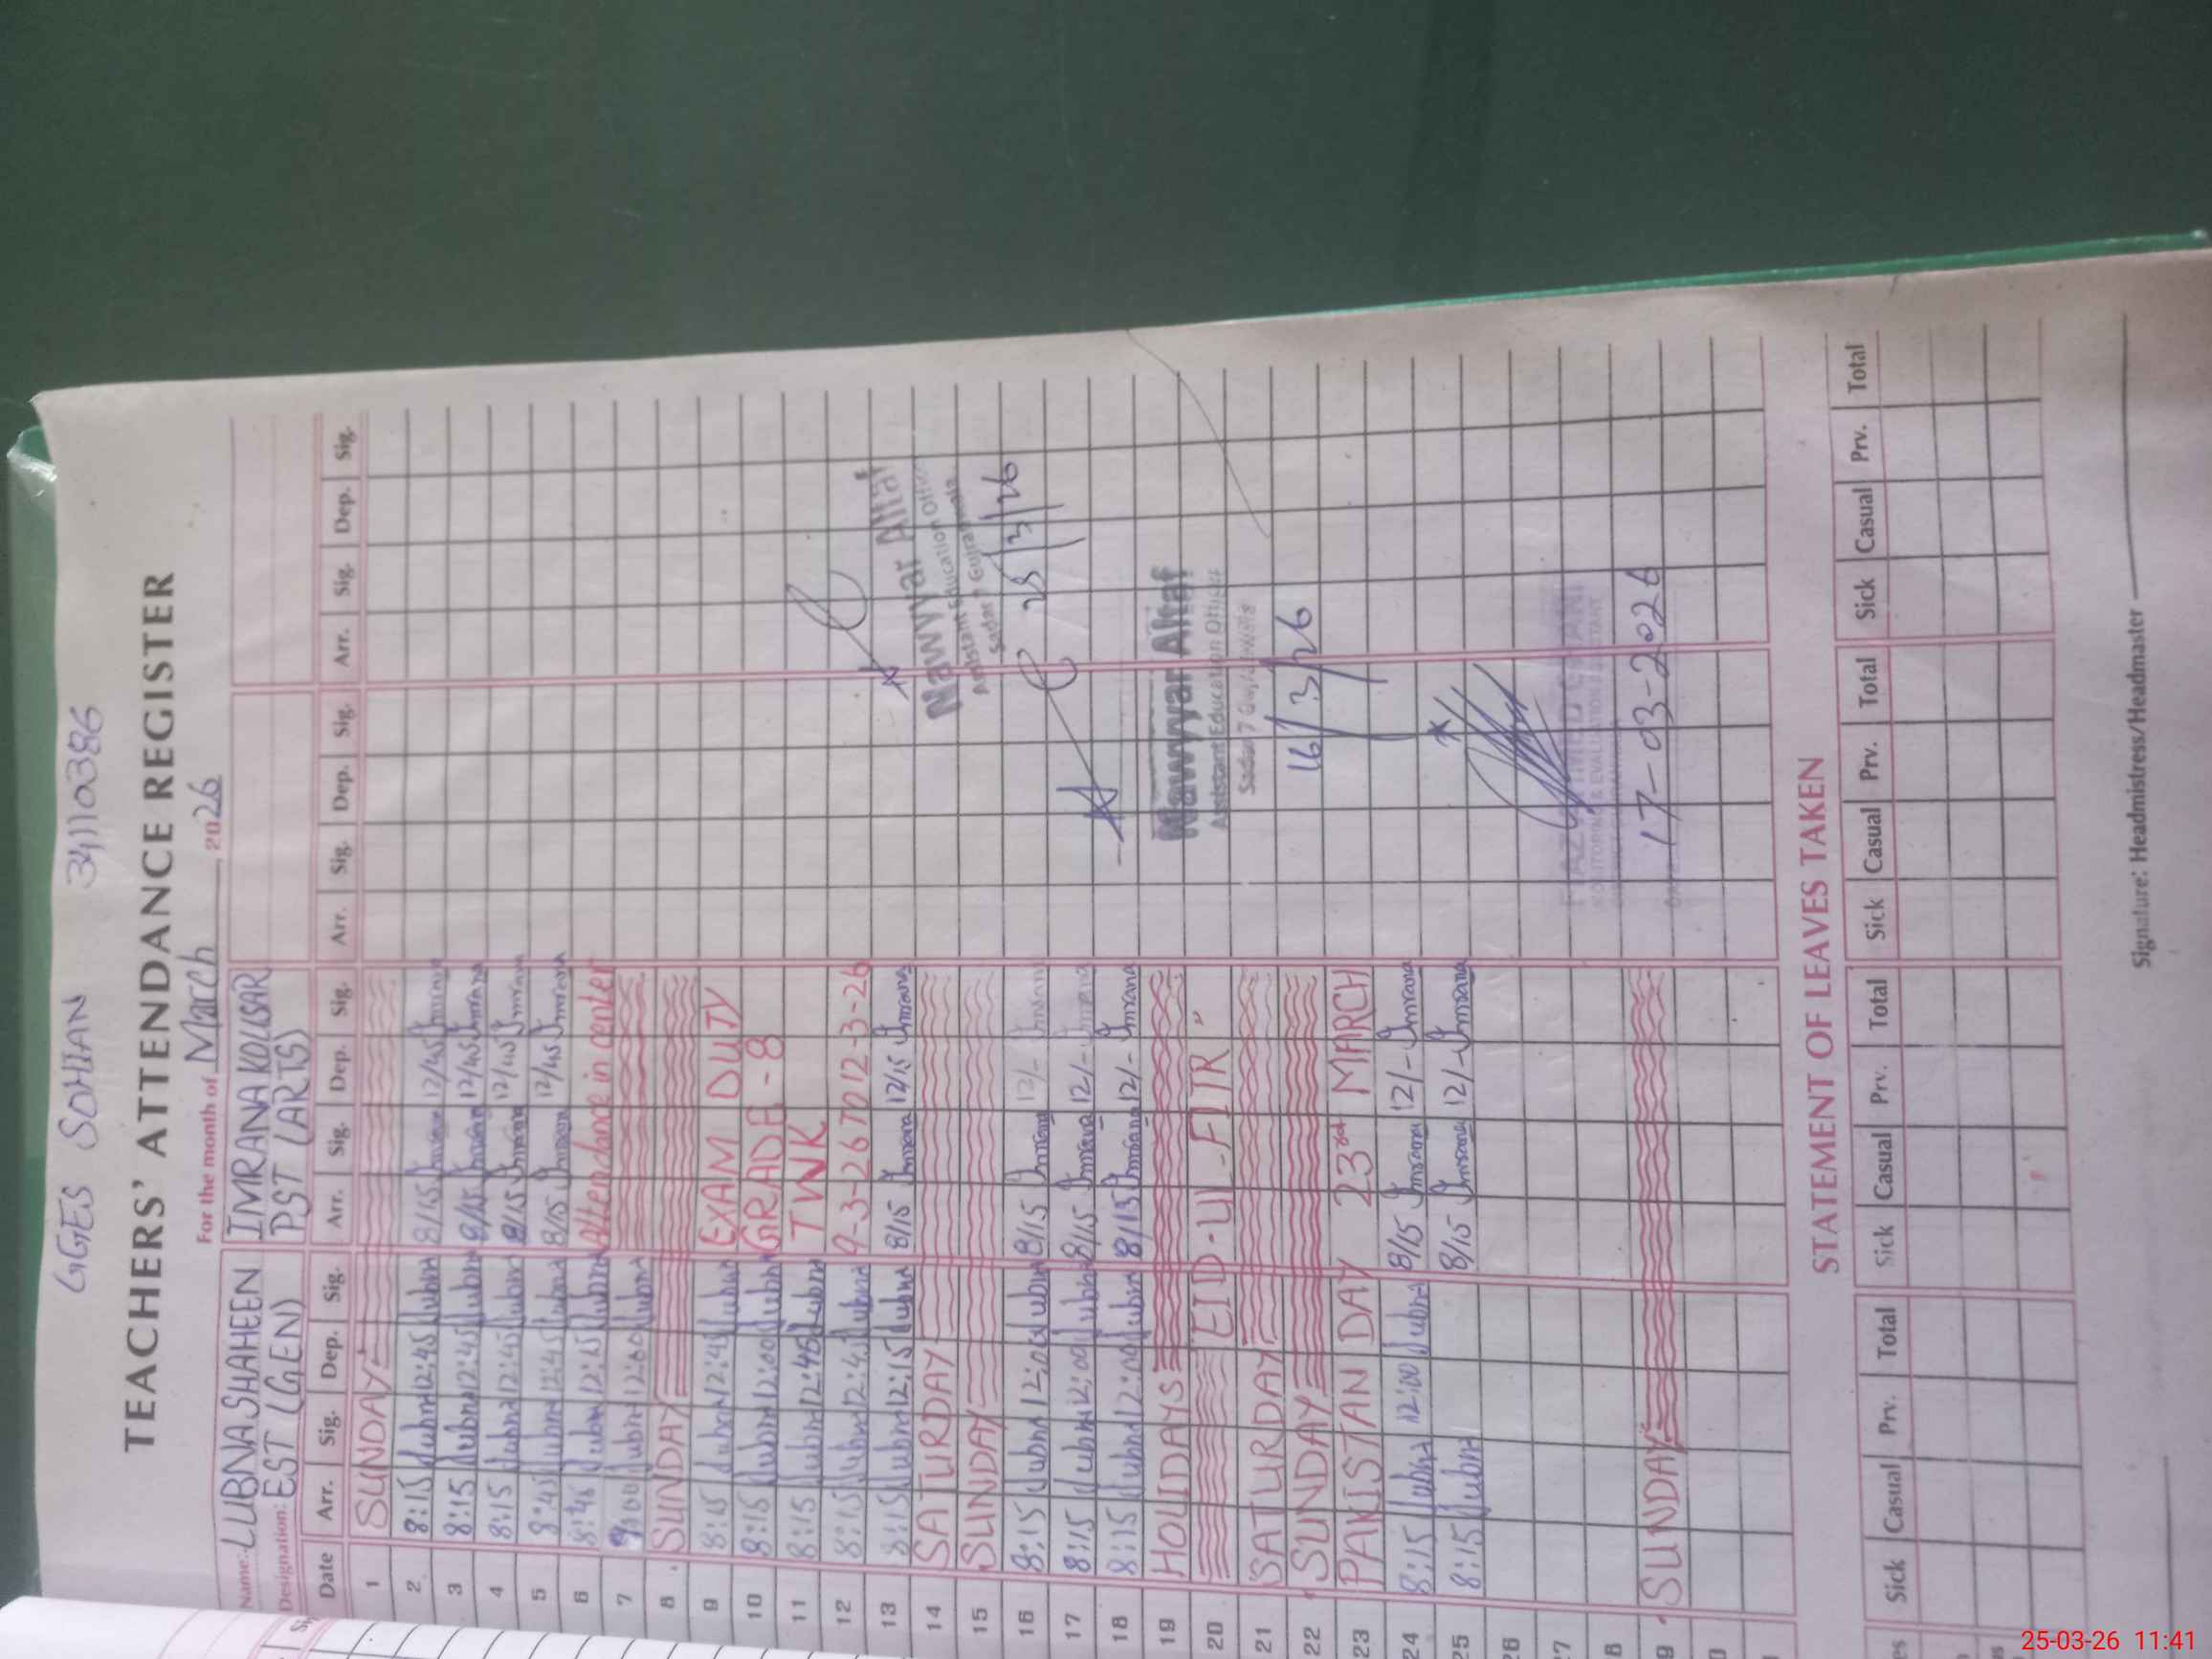 GGES SOHIAN 34110386
TEACHERS' ATTENDANCE REGISTER
For the month of March, 2026
Name: LUBNA SHAHEEN IMRANA KOUSAR
Designation: EST (GEN) PST (ARTS)
Date Arr. Sig. Dep. Sig. Arr. Sig. Dep. Sig. Arr. Sig. Dep. Sig. Arr. Sig. Dep. Sig.
1 SUNDAY
2 8:15 Lubna 12:45 Lubna 8/15 Imrana 12/45 Imrana
3 8:15 Lubna 12:45 Lubna 8/15 Imrana 12/45 Imrana
4 8:15 Lubna 12:45 Lubna 8/15 Imrana 12/45 Imrana
5 8:45 Lubna 12:45 Lubna 8/15 Imrana 12/45 Imrana
6 Lubna Lubna Attendance in center
7 Lubna 12:00 Lubna
8 SUNDAY
9 8:15 Lubna 12:45 Lubna EXAM DUTY
10 8:15 Lubna 12:00 Lubna GRADE-8
11 8:15 Lubna 12:45 Lubna TWK
12 8:15 Lubna 12:45 Lubna 9-3-26 TO 12-3-26
13 8:15 Lubna 12:15 Lubna 8/15 Imrana 12/15 Imrana
14 SATURDAY
15 SUNDAY
16 8:15 Lubna 12:00 Lubna 8/15 Imrana 12/- Imrana
17 8:15 Lubna 12:00 Lubna 8/15 Imrana 12/- Imrana
18 8:15 Lubna 12:00 Lubna 8/15 Imrana 12/- Imrana
19 HOLIDAYS
20 EID-UL-FITR "
21 SATURDAY
22 SUNDAY
23 PAKISTAN DAY 23rd MARCH
24 8:15 Lubna 12:00 Lubna 8/15 Imrana 12/- Imrana
25 8:15 Lubna 8/15 Imrana 12/- Imrana
26
27
8
9 SUNDAY
0
Nawyyar Altaf
Assistant Education Officer
Gujranwala
25/3/26
Nawyyar Altaf
Assistant Education Officer
16/3/26
MONITORING & EVALUATION ASSISTANT
17-03-2026
STATEMENT OF LEAVES TAKEN
Sick Casual Prv. Total Sick Casual Prv. Total Sick Casual Prv. Total Sick Casual Prv. Total
Signature: Headmistress/Headmaster
25-03-26 11:41